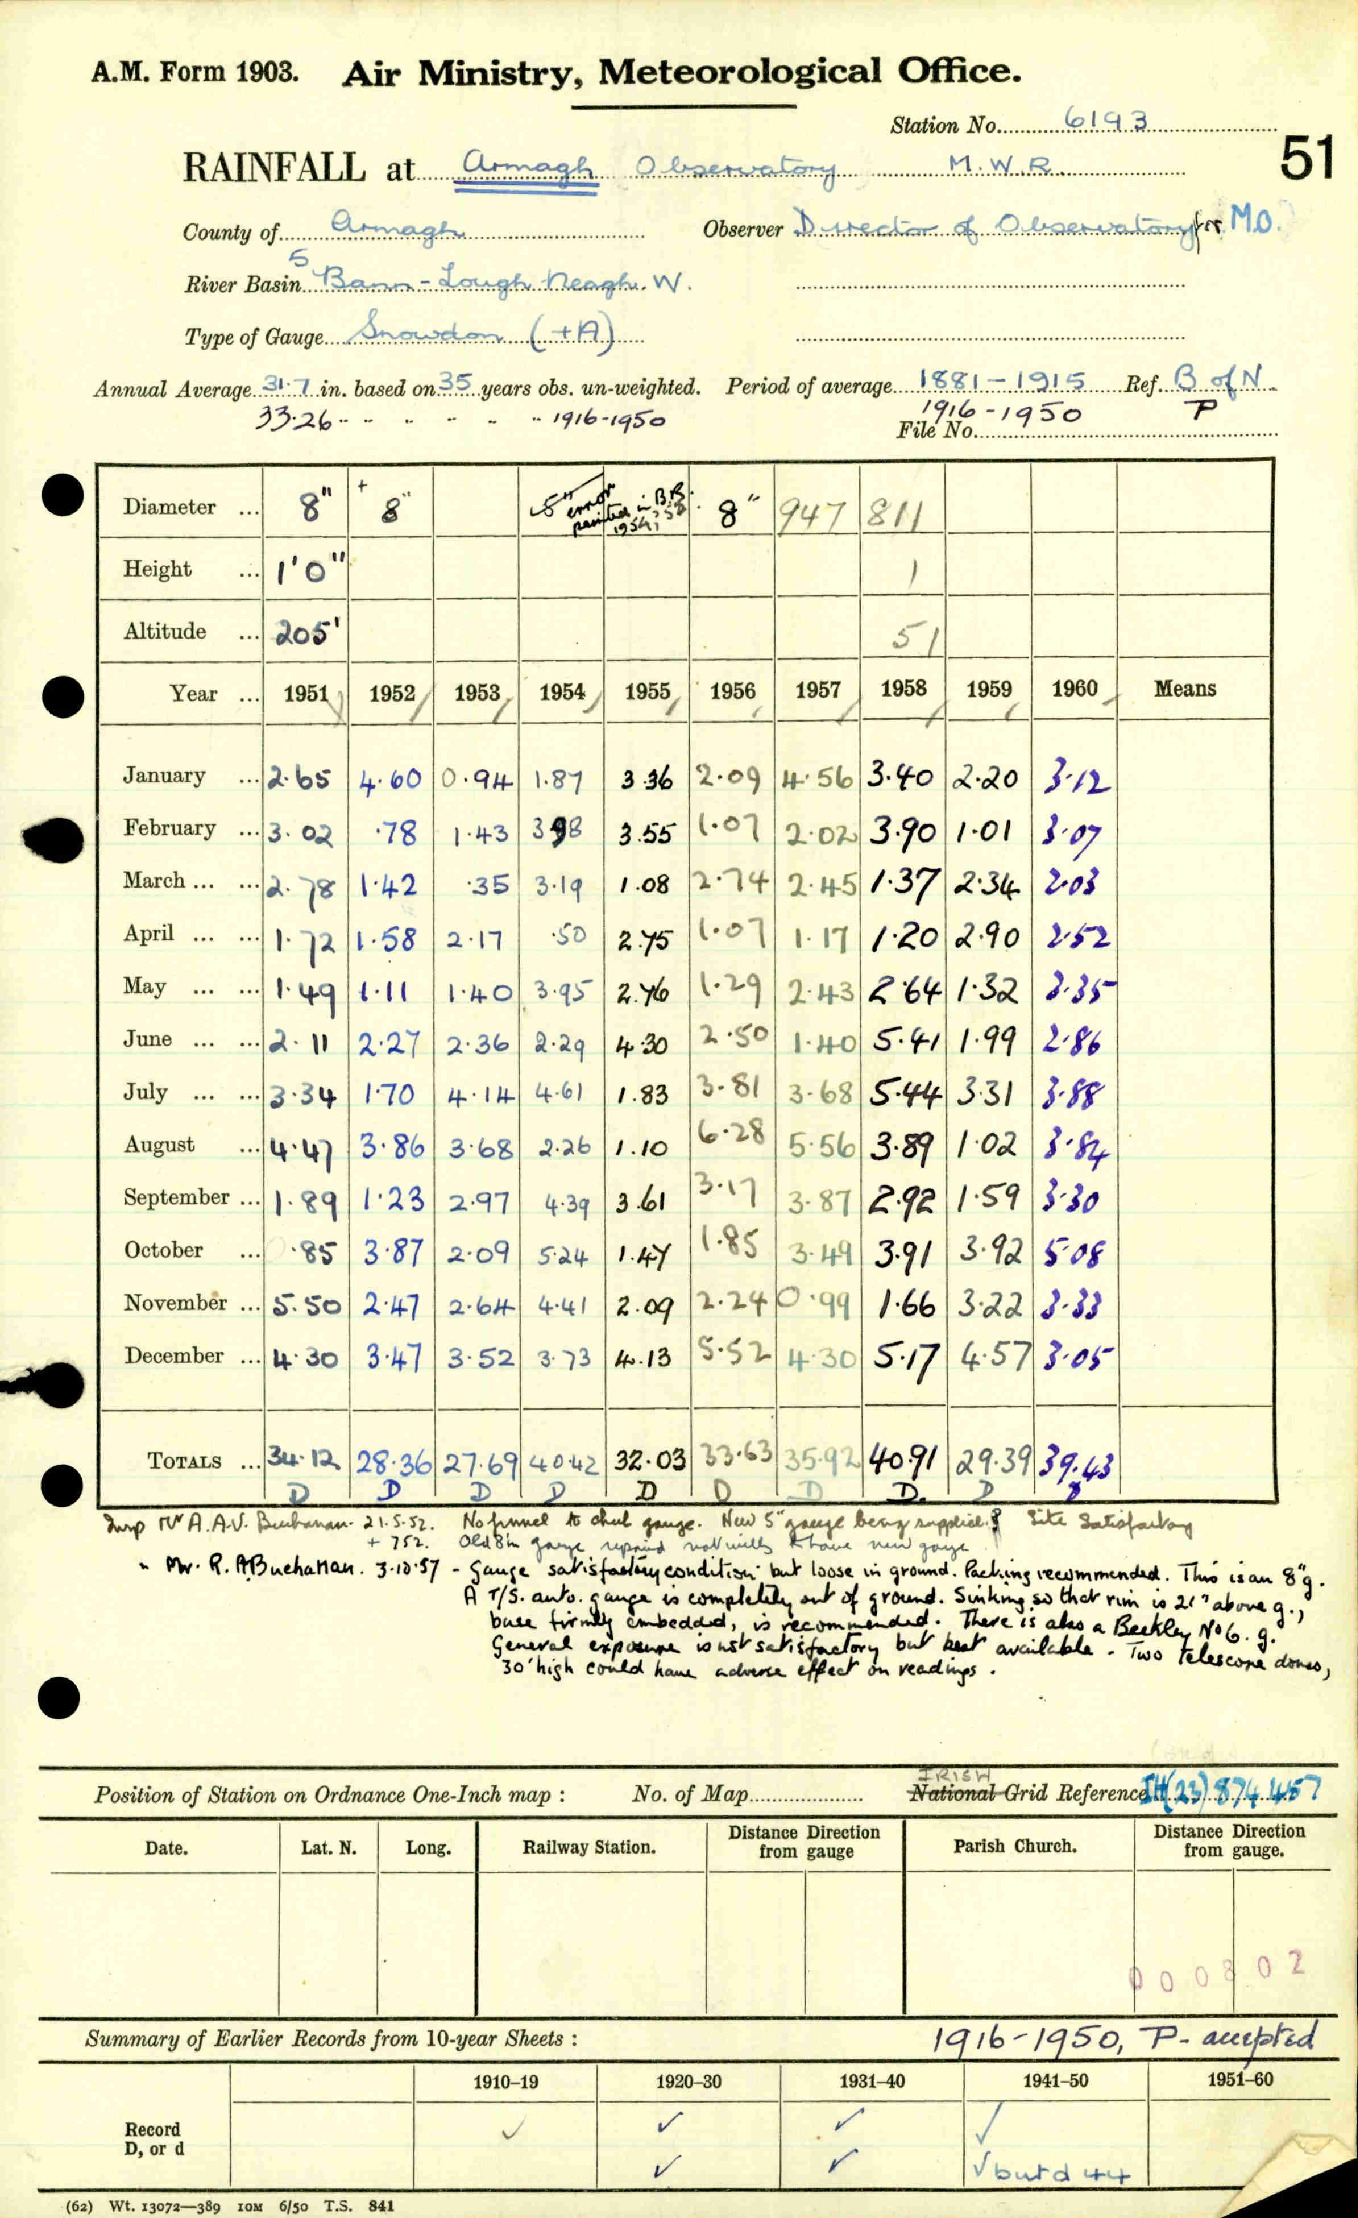 A.M. Form 1903. Air Ministry, Meteorological Office.
Station No. 6193
51
RAINFALL at Armagh Observatory M.W.R.
County of Armagh Observer Director of Observatory for M.O.
River Basin 5 Bann - Lough Neagh. W.
Type of Gauge Snowdon (+A)
Annual Average 31.7 in. based on 35 years obs. un-weighted. Period of average 1881-1915 Ref. B of N.
33.26 - " " " " " 1916-1950 1916-1950 P
File No.
Diameter ... 8" + 8" 5" error printed in B.R. 1954, 8" 947 811
Height ... 1'0" 1
Altitude ... 205' 51
Year ... 1951 1952 1953 1954 1955 1956 1957 1958 1959 1960 Means
January ... 2.65 4.60 0.94 1.87 3.36 2.09 4.56 3.40 2.20 3.12
February ... 3.02 .78 1.43 3.98 3.55 1.07 2.02 3.90 1.01 3.07
March ... ... 2.78 1.42 .35 3.19 1.08 2.74 2.45 1.37 2.34 2.03
April ... ... 1.72 1.58 2.17 .50 2.75 1.07 1.17 1.20 2.90 2.52
May ... ... 1.49 1.11 1.40 3.95 2.76 1.29 2.43 2.64 1.32 3.35
June ... ... 2.11 2.27 2.36 2.29 4.30 2.50 1.40 5.41 1.99 2.86
July ... ... 3.34 1.70 4.14 4.61 1.83 3.81 3.68 5.44 3.31 3.88
August ... 4.47 3.86 3.68 2.26 1.10 6.28 5.56 3.89 1.02 3.84
September ... 1.89 1.23 2.97 4.39 3.61 3.17 3.87 2.92 1.59 3.30
October ... .85 3.87 2.09 5.24 1.47 1.85 3.49 3.91 3.92 5.08
November ... 5.50 2.47 2.64 4.41 2.09 2.24 0.99 1.66 3.22 3.33
December ... 4.30 3.47 3.52 3.73 4.13 5.52 4.30 5.17 4.57 3.05
TOTALS ... 34.12 28.36 27.69 40.42 32.03 33.63 35.92 40.91 29.39 39.43
D D D D D D D D. D D
Insp Mr A.A.V. Buchanan. 21.5.52. No funnel to check gauge. New 5" gauge being supplied. Site Satisfactory
+ 752. Old 8in gauge repaired not willing to have new gauge
" Mr. R. A. Buchanan. 3.10.57 - Gauge satisfactory condition but loose in ground. Packing recommended. This is an 8" g.
A T/S. auto. gauge is completely out of ground. Sinking so that rim is 21" above g.,
base firmly embedded, is recommended. There is also a Beckley No 6. g.
General exposure is not satisfactory but best available - Two telescope domes,
30' high could have adverse effect on readings.
Position of Station on Ordnance One-Inch map : No. of Map IRISH National Grid Reference IH(23) 874 457
Date. Lat. N. Long. Railway Station. Distance Direction from gauge Parish Church. Distance Direction from gauge.
000802
Summary of Earlier Records from 10-year Sheets : 1916-1950, P - accepted
1910–19 1920–30 1931–40 1941–50 1951–60
Record ✓ ✓ ✓ ✓
D, or d ✓ ✓ ✓ but d 44
(62) Wt. 13072—389 10M 6/50 T.S. 841